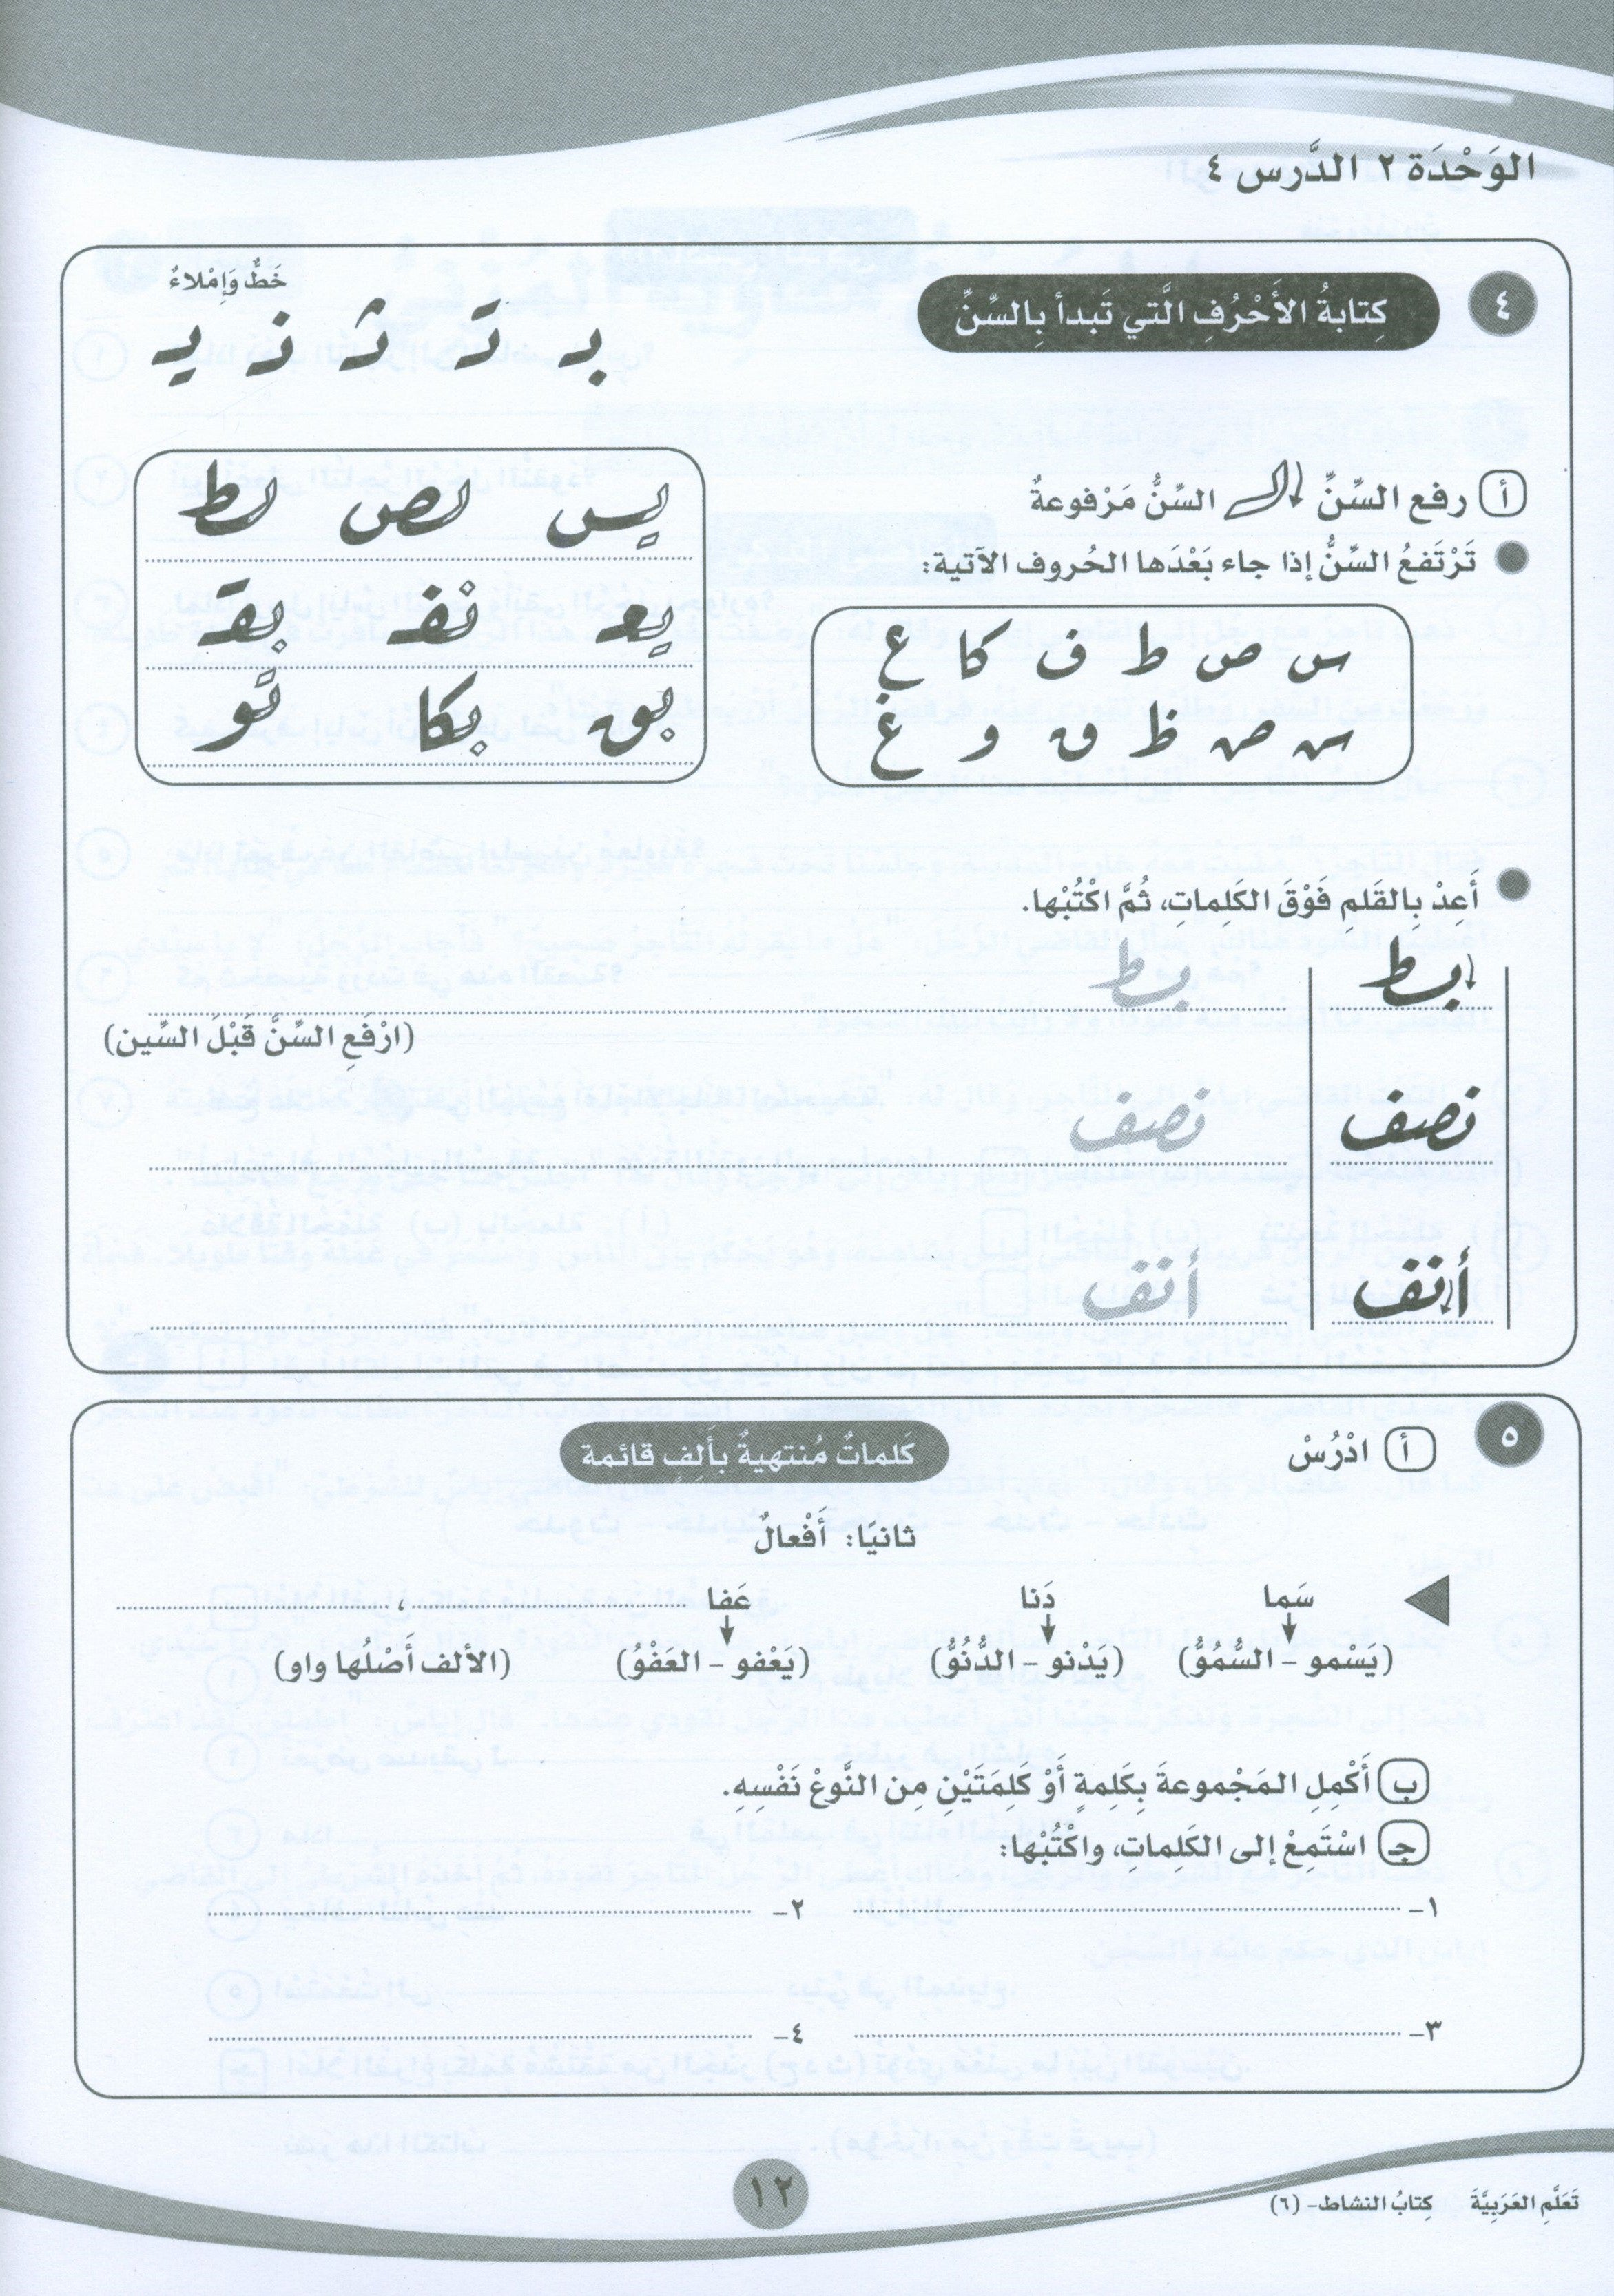 الوَحْدَة ٢ الدَّرس ٤
٤ كِتابةُ الأَحْرُفِ الَّتي تَبدأ بِالسِّنِّ
خَطٌّ وَإِمْلاءٌ
بـ تـ ثـ نـ يـ
أ رفع السِّنِّ السِّنُّ مَرْفوعةٌ
● تَرْتَفعُ السِّنُّ إذا جاء بَعْدَها الحُروف الآتية:
س ص ط ف كا ع
س ص ظ ق و غ
يس لص لط
يعـ نفـ بقـ
بق بكا تو
● أَعِدْ بِالقَلمِ فَوْقَ الكَلِماتِ، ثُمَّ اكْتُبْها.
بسط بسط
(ارْفَعِ السِّنَّ قَبْلَ السِّين)
نصف نصف
أنف أنف
٥ أ ادْرُسْ كَلِماتٌ مُنتهيةٌ بأَلِفٍ قائمة
ثانيًا: أَفْعالٌ
سَما دَنا عَفا ،
(يَسْمو – السُّمُوُّ) (يَدْنو – الدُّنُوُّ) (يَعْفو – العَفْوُ) (الألف أَصْلُها واو)
ب أَكْمِلِ المَجْموعةَ بِكَلِمةٍ أَوْ كَلِمَتَيْنِ مِن النَّوعْ نَفْسِهِ.
جـ اسْتَمِعْ إلى الكَلِماتِ، واكْتُبْها:
١– ٢–
٣– ٤–
١٢
تَعَلَّمِ العَرَبِيَّةَ كِتابُ النشاط– (٦)